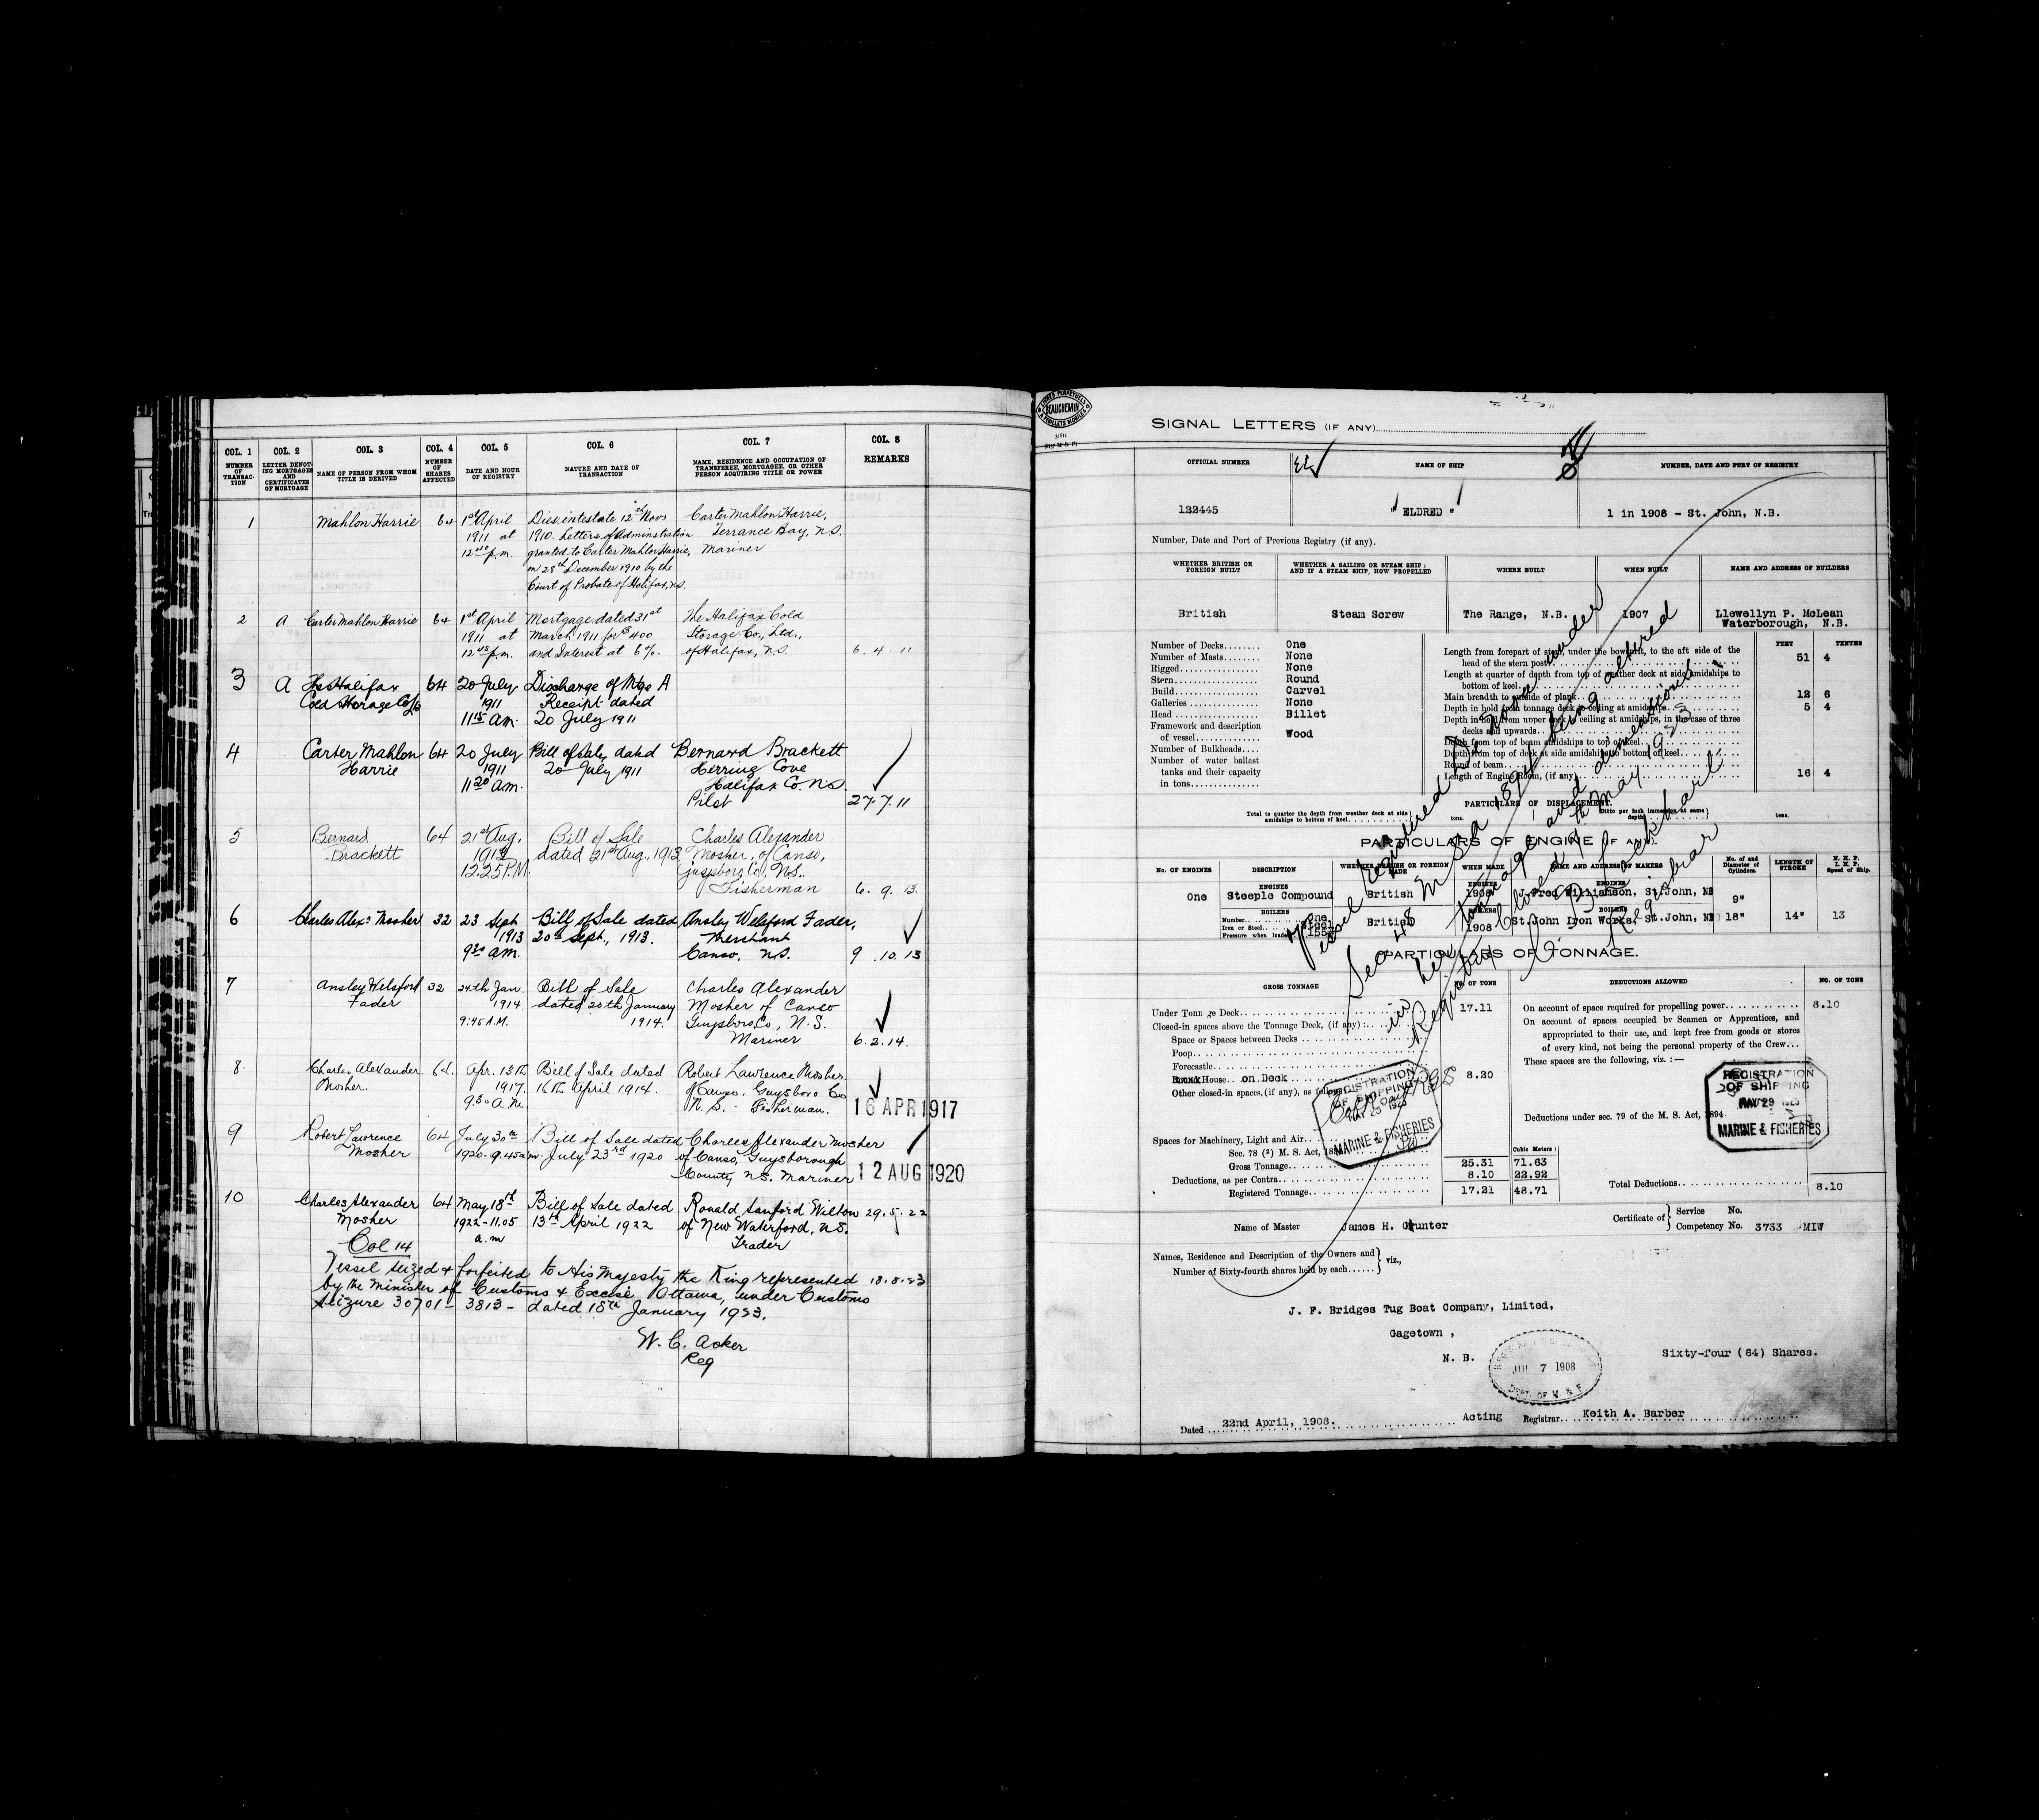 COL. 1 COL. 2 COL. 3 COL. 4 COL. 5 COL. 6 COL. 7 COL. 8
NUMBER OF TRANSAC- TION
LETTER DENOT- ING MORTGAGES AND CERTIFICATES OF MORTGAGE
NAME OF PERSON FROM WHOM TITLE IS DERIVED
NUMBER OF SHARES AFFECTED
DATE AND HOUR OF REGISTRY
NATURE AND DATE OF TRANSACTION
NAME, RESIDENCE AND OCCUPATION OF TRANSFEREE, MORTGAGEE, OR OTHER PERSON ACQUIRING TITLE OR POWER
REMARKS
1 Mahlon Harrie 64 1st April Dies intestate 12th Novr Carter Mahlon Harrie,
1911 at 1910. Letters of Adminstration Terrance Bay, N.S.
12 40 p.m. granted to Carter Mahlon Harrie, Mariner
on 28th December 1910 by the
Court of Probate of Halifax, N.S.
2 A Carter Mahlon Harrie 64 1st April Mortgage dated 31st The Halifax Cold
1911 at March 1911 for $400 Storage Co., Ltd.,
12 45 p.m. and Interest at 6%. of Halifax, N.S. 6. 4. 11
3 A The Halifax 64 20 July Discharge of Mtge A
Cold Storage Co Ld 1911 Receipt dated
11 15 am. 20 July 1911
4 Carter Mahlon 64 20 July Bill of Sale, dated Bernard Brackett
Harrie 1911 20 July 1911 Herring Cove
11 20 am. Halifax Co. N.S.
Pilot 27.7.11
5 Bernard 64 21st Aug. Bill of Sale Charles Alexander
Brackett 1913 dated 21st Aug., 1913 Mosher, of Canso,
12.25 P.M. Guysboro Co., N.S.
Fisherman 6. 9. 13.
6 Charles Alexr Mosher 32 23 Sept Bill of Sale dated Ansley Welsford Fader,
1913 20th Sept., 1913. Merchant
9 30 am. Canso, N.S. 9 .10. 13
7 Ansley Welsford 32 24th Jan. Bill of Sale Charles Alexander
Fader 1914 dated 20th January Mosher of Canso
9:45 A.M. 1914. Guysboro Co., N.S.
Mariner 6.2.14.
8. Charles Alexander 64. Apr. 13th Bill of Sale dated Robert Lawrence Mosher.
Mosher. 1917. 16th April 1914. of Canso, Guysboro Co
9.30 A.M. N.S. - Fisherman. 16 APR 1917
9 Robert Lawrence 64 July 30th Bill of Sale dated Charles Alexander Mosher
Mosher 1920. 9.45am. July 23rd 1920 of Canso, Guysborough
County N.S. Mariner 12 AUG 1920
10 Charles Alexander 64 May 18th Bill of Sale dated Ronald Sanford Wilton 29.5.22
Mosher 1922-11.05 13th April 1922 of New Waterford, N.S.
a.m Trader
Col 14
Vessel seized & forfeited to His Majesty the King represented 18.8.23
by the Minister of Customs & Excise Ottawa, under Customs
Seizure 30701 - 3813 - dated 18th January 1923.
W. C. Acker
Reg
BEAUCHEMIN
SIGNAL LETTERS (IF ANY)
OFFICIAL NUMBER NAME OF SHIP NUMBER, DATE AND PORT OF REGISTRY
122445 " ELDRED " 1 in 1908 - St. John, N.B.
Number, Date and Port of Previous Registry (if any).
WHETHER BRITISH OR FOREIGN BUILT
WHETHER A SAILING OR STEAM SHIP; AND IF A STEAM SHIP, HOW PROPELLED
WHERE BUILT WHEN BUILT NAME AND ADDRESS OF BUILDERS
British Steam Screw The Range, N.B. 1907 Llewellyn P. McLean
Waterborough, N.B.
FEET TENTHS
Number of Decks One
Number of Masts None
Rigged None
Stern Round
Build Carvel
Galleries None
Head Billet
Framework and description
of vessel Wood
Number of Bulkheads
Number of water ballast
tanks and their capacity
in tons
Length from forepart of stem, under the bowsprit, to the aft side of the
head of the stern post 51 4
Length at quarter of depth from top of weather deck at side amidships to
bottom of keel
Main breadth to outside of plank 12 6
Depth in hold from tonnage deck to ceiling at amidships 5 4
Depth in hold from upper deck to ceiling at amidships, in the case of three
decks and upwards
Depth from top of beam amidships to top of keel
Depth from top of deck at side amidships to bottom of keel
Round of beam
Length of Engine Room, (if any) 16 4
PARTICULARS OF DISPLACEMENT.
Total to quarter the depth from weather deck at side amidships to bottom of keel tons. Ditto per inch immersion at same depth tons.
PARTICULARS OF ENGINE (IF ANY).
No. OF ENGINES DESCRIPTION WHETHER BRITISH OR FOREIGN MADE WHEN MADE NAME AND ADDRESS OF MAKERS No. of and Diameter of Cylinders. LENGTH OF STROKE N. H. P. I. H. P. Speed of Ship.
ENGINES ENGINES ENGINES
One Steeple Compound British 1908 J. Fred Williamson, St. John, NB 9"
BOILERS BOILERS BOILERS
Number One
Iron or Steel Steel
Pressure when loaded 155
British 1908 St. John Iron Works, St. John, NB 18" 14" 13
PARTICULARS OF TONNAGE.
GROSS TONNAGE No. OF TONS DEDUCTIONS ALLOWED No. OF TONS
Under Tonnage Deck 17.11
Closed-in spaces above the Tonnage Deck, (if any):
Space or Spaces between Decks
Poop
Forecastle
House on Deck 8.20
Other closed-in spaces, (if any), as follows
Spaces for Machinery, Light and Air
Sec. 78 (2) M. S. Act,
Cubic Meters:
Gross Tonnage 25.31 71.63
Deductions, as per Contra 8.10 22.92
Registered Tonnage 17.21 48.71
On account of space required for propelling power 8.10
On account of spaces occupied by Seamen or Apprentices, and
appropriated to their use, and kept free from goods or stores
of every kind, not being the personal property of the Crew
These spaces are the following, viz. :—
Deductions under sec. 79 of the M. S. Act, 1894
Total Deductions 8.10
REGISTRATION
OF SHIPPING
MAY 29 1923
MARINE & FISHERIES
REGISTRATION
OF SHIPPING
MAY 29 1923
MARINE & FISHERIES
Vessel registered anew under
Sec 48 M.S.A 1894 being altered
in her tonnage and dimensions.
Registry closed 9th May 1923
Registrar
Name of Master James H. Grunter
Certificate of Service No.
Competency No. 3733 MIW
Names, Residence and Description of the Owners and
Number of Sixty-fourth shares held by each viz.,
J. F. Bridges Tug Boat Company, Limited,
Gagetown ,
N. B. Sixty-four (64) Shares.
7 1908
DEPT. OF M & F
Dated 22nd April, 1908. Acting Registrar Keith A. Barber